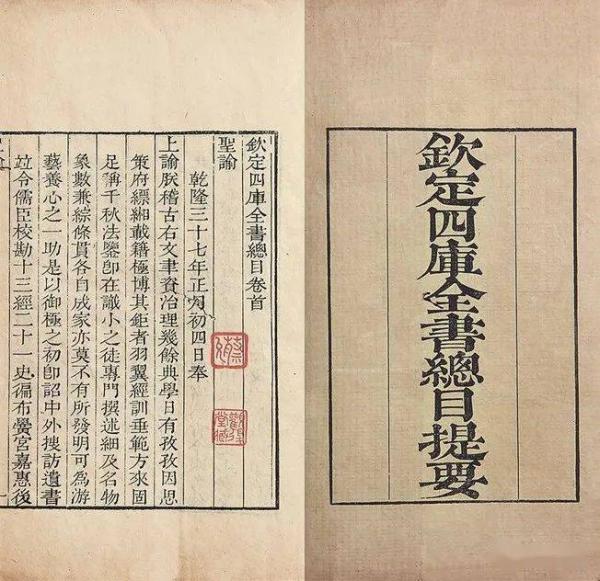 欽定四庫全書總目提要
欽定四庫全書總目卷首
聖諭
乾隆三十七年正月初四日奉
上諭朕稽古右文聿資治理幾餘典學日有孜孜因思
策府縹緗載籍極博其鉅者羽翼經訓垂範方來固
足稱千秋法鑒卽在識小之徒專門撰述細及名物
象數兼綜條貫各自成家亦莫不有所發明可為游
藝養心之一助是以御極之初卽詔中外搜訪遺書
竝令儒臣校勘十三經二十一史徧布黌宮嘉惠後